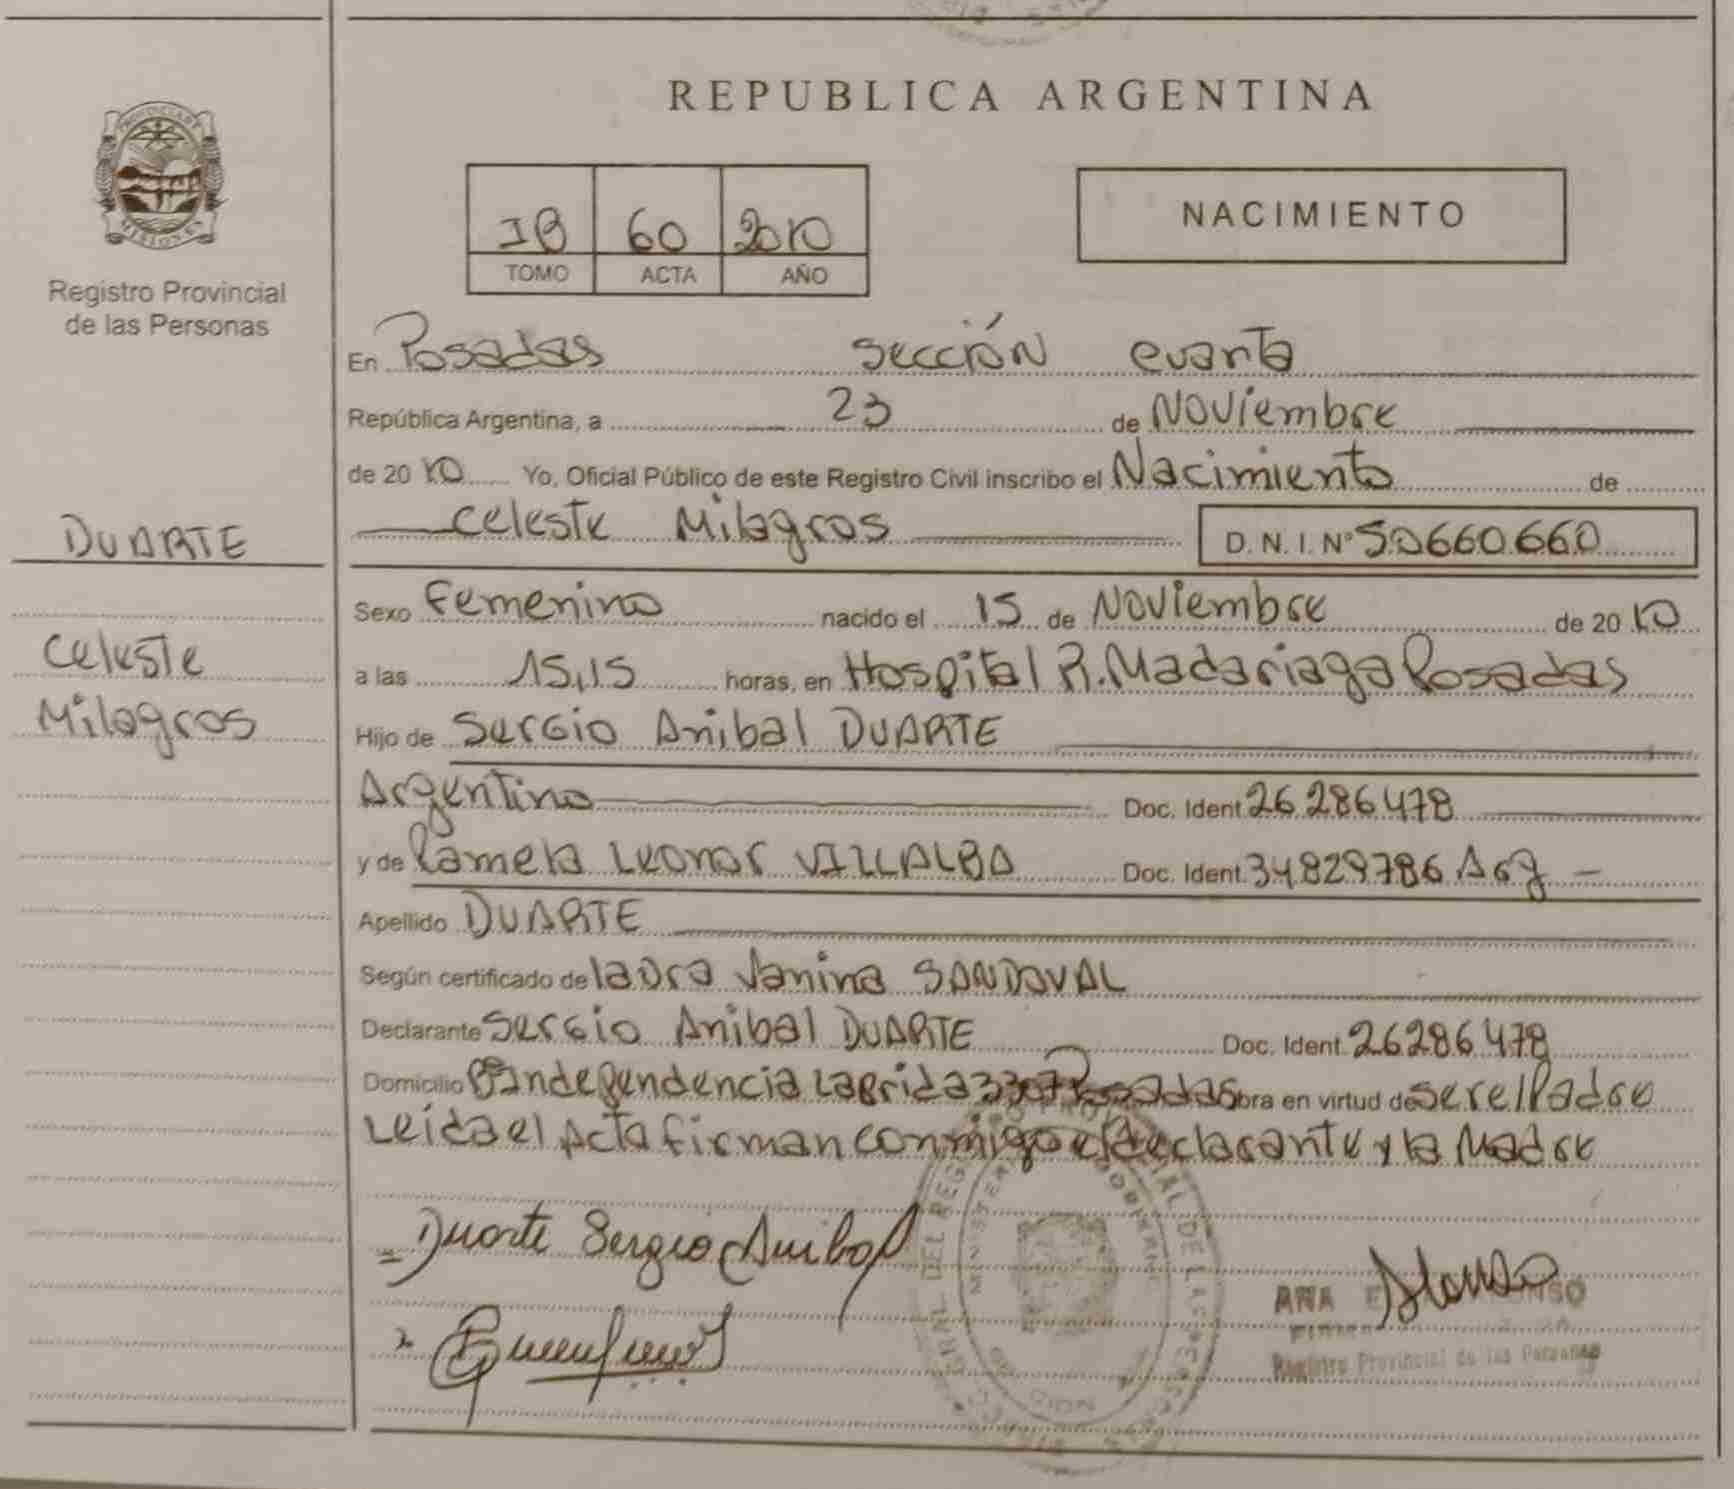 REPUBLICA ARGENTINA
PROVINCIA DE
MISIONES
Registro Provincial
de las Personas
IB 60 2010
TOMO ACTA AÑO
NACIMIENTO
En Posadas sección cuarta
República Argentina, a 23 de Noviembre
de 2010 Yo, Oficial Público de este Registro Civil inscribo el Nacimiento de
Celeste Milagros D. N. I. Nº 50660660
DUARTE
Celeste
Milagros
Sexo Femenino nacido el 15 de Noviembre de 2010
a las 15,15 horas, en Hospital R. Madariaga Posadas
Hijo de Sergio Anibal DUARTE
Argentino Doc. Ident. 26.286.478
y de Pamela Leonor VILLALBA Doc. Ident. 34.829.786 Arg
Apellido DUARTE
Según certificado de laura Vanina SANDOVAL
Declarante Sergio Anibal DUARTE Doc. Ident. 26286478
Domicilio Bº Independencia Laprida 3307 Posadas obra en virtud de ser el Padre
Leída el Acta firman conmigo el declarante y la Madre
Duarte Sergio Anibal
ANA E
Registro Provincial de las Personas